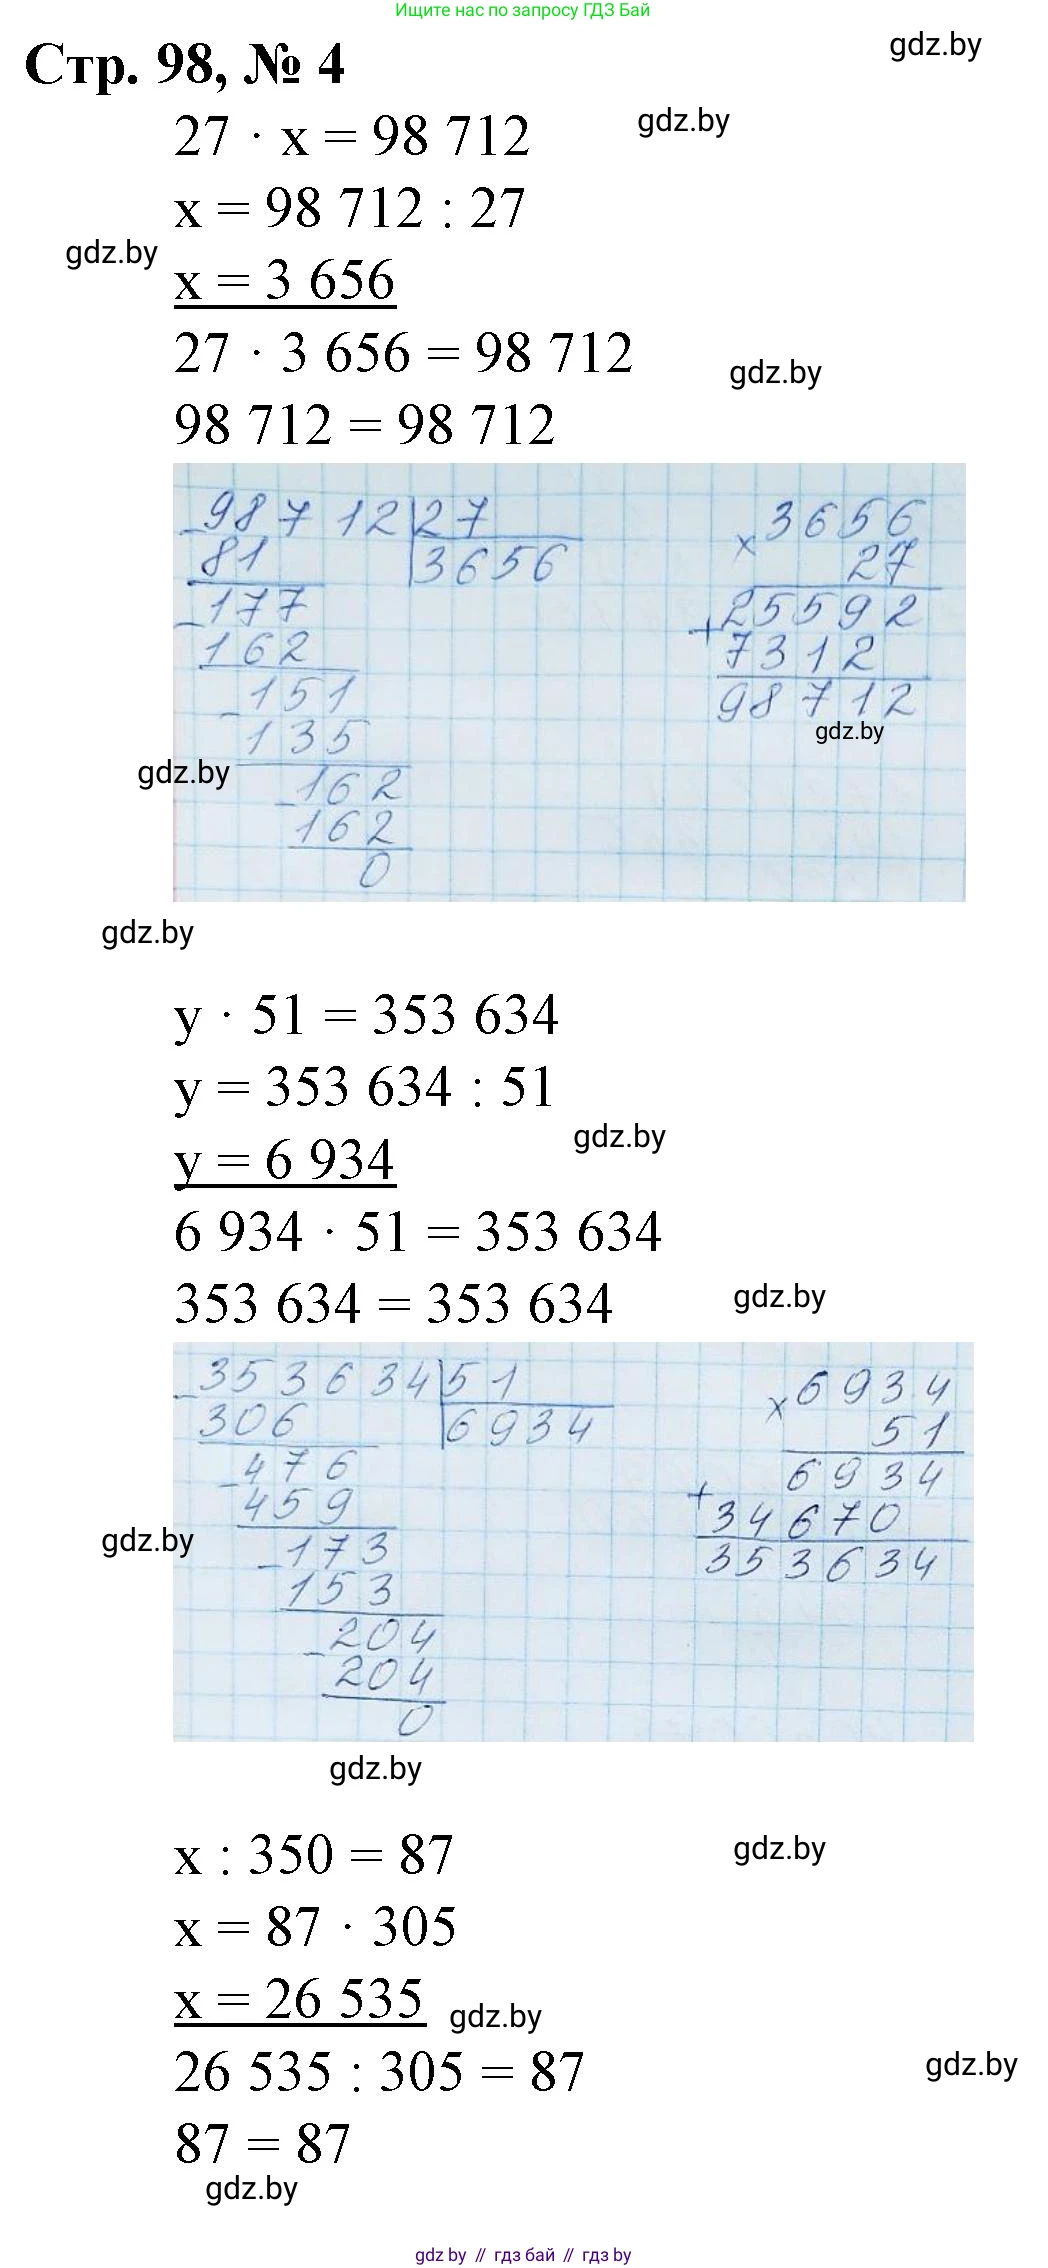 Ищите нас по запросу ГДЗ Бай
Стр. 98, № 4
gdz.by
27 · x = 98 712
gdz.by
x = 98 712 : 27
gdz.by
x = 3 656
27 · 3 656 = 98 712
gdz.by
98 712 = 98 712
98712 27
81 3656
177
162
151
135
162
162
0
3656
x 27
25592
+
7312
98712
gdz.by
gdz.by
gdz.by
y · 51 = 353 634
y = 353 634 : 51
gdz.by
y = 6 934
6 934 · 51 = 353 634
353 634 = 353 634
gdz.by
353634 51
306 6934
476
459
173
153
204
204
0
6934
x 51
6934
+
34670
353634
gdz.by
gdz.by
x : 350 = 87
gdz.by
x = 87 · 305
x = 26 535
gdz.by
26 535 : 305 = 87
gdz.by
87 = 87
gdz.by
gdz by // гдз бай // гдз by